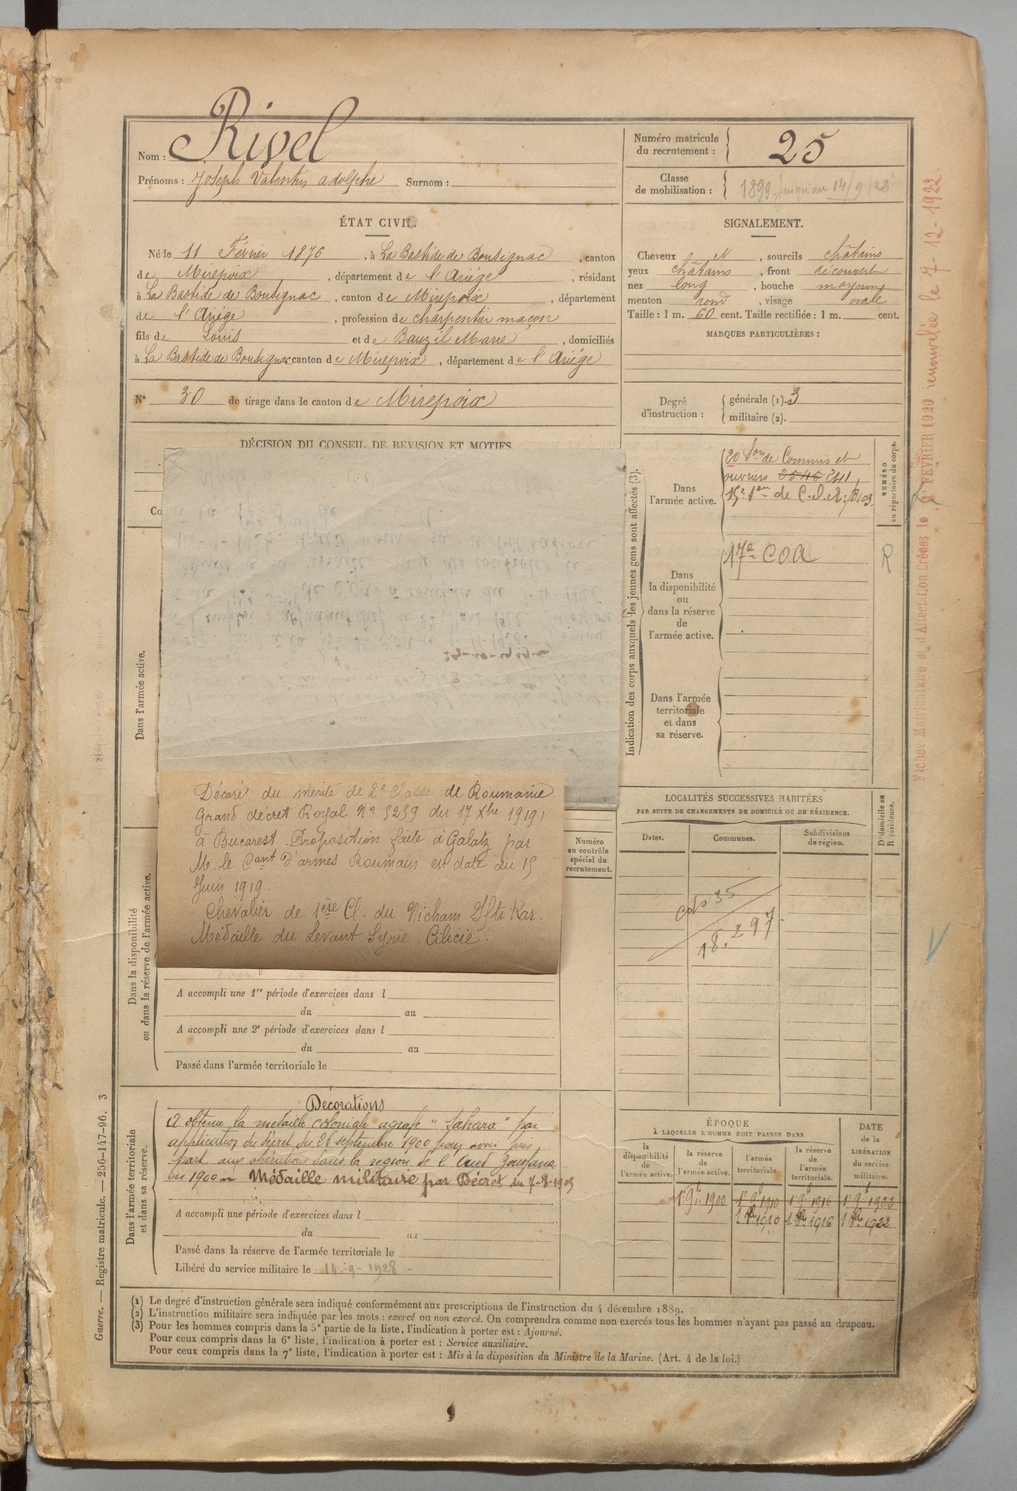 Nom : Rivel
Prénoms : Joseph Valentin adolphe Surnom :
Numéro matricule du recrutement : 25
Classe de mobilisation : 1899 jusqu'au 14/9/28
ÉTAT CIVIL.
Né le 11 Février 1876, à La Bastide de Bousignac, canton
de Mirepoix, département de l'Ariège, résidant
à La Bastide de Bousignac, canton de Mirepoix, département
de l'Ariège, profession de charpentier maçon
fils de Louis et de Bauzil Marie, domiciliés
à La Bastide de Bousignac canton de Mirepoix, département de l'Ariége
N° 30 de tirage dans le canton de Mirepoix
SIGNALEMENT.
Cheveux N, sourcils châtains
yeux châtains, front découvert
nez long, bouche moyenne
menton rond, visage ovale
Taille : 1 m. 60 cent. Taille rectifiée : 1 m. cent.
MARQUES PARTICULIÈRES :
Degré d'instruction : générale (1). 3
militaire (2).
DÉCISION DU CONSEIL DE REVISION ET MOTIFS.
Dans l'armée active.
Décoré du mérite de 2e Classe de Roumanie
Grand décret Royal No 5259 du 17 Xbre 1919,
à Bucarest. Proposition faite à Galatz par
M. le Cant d'armes Roumain en date du 15
Juin 1919.
Chevalier de 1ère Cl. du Nicham Ifti Kar.
Médaille du Levant Syrie. Cilicie.
Numéro au contrôle spécial du recrutement.
Dans la disponibilité
ou dans la réserve de l'armée active.
A accompli une 1re période d'exercices dans l
du au
A accompli une 2e période d'exercices dans l
du au
Passé dans l'armée territoriale le
Dans l'armée territoriale
et dans sa réserve.
Décorations
A obtenu la médaille coloniale agrafe "Sahara" par
application du décret du septembre 1900 pour avoir pris
part aux opérations dans la région de l'Oued Zousfana
en 1900 Médaille militaire par Décret du 7-8-1905
A accompli une période d'exercices dans l
du au
Passé dans la réserve de l'armée territoriale le
Libéré du service militaire le 14-9-1928 -
Indication des corps auxquels les jeunes gens sont affectés (3).
Dans l'armée active.
20 Son de Commis et
ouvriers
15e Son de C.O.A.
NUMÉRO au répertoire du corps.
Dans la disponibilité ou dans la réserve de l'armée active.
17e COA
R
Dans l'armée territoriale et dans sa réserve.
LOCALITÉS SUCCESSIVES HABITÉES
PAR SUITE DE CHANGEMENTS DE DOMICILE OU DE RÉSIDENCE.
Dates. Communes. Subdivisions de région. D domicile ou R résidence.
18.297
ÉPOQUE
À LAQUELLE L'HOMME DOIT PASSER DANS
la disponibilité de l'armée active.
la réserve de l'armée active.
l'armée territoriale.
la réserve de l'armée territoriale.
DATE de la LIBÉRATION du service militaire.
1r 9bre 1900 1r 9bre 1910 1r 9bre 1916 1r 9bre 1922
1910 1916 1922
(1) Le degré d'instruction générale sera indiqué conformément aux prescriptions de l'instruction du 4 décembre 1889.
(2) L'instruction militaire sera indiquée par les mots : exercé ou non exercé. On comprendra comme non exercés tous les hommes n'ayant pas passé au drapeau.
(3) Pour les hommes compris dans la 5e partie de la liste, l'indication à porter est : Ajourné.
Pour ceux compris dans la 6e liste, l'indication à porter est : Service auxiliaire.
Pour ceux compris dans la 7e liste, l'indication à porter est : Mis à la disposition du Ministre de la Marine. (Art. 4 de la loi.)
Guerre. — Registre matricule. — 256-147-96. 3
Fiches Matriculaire et d'Affectation Créées le FEVRIER 1920 renouvelée le 7-12-1922